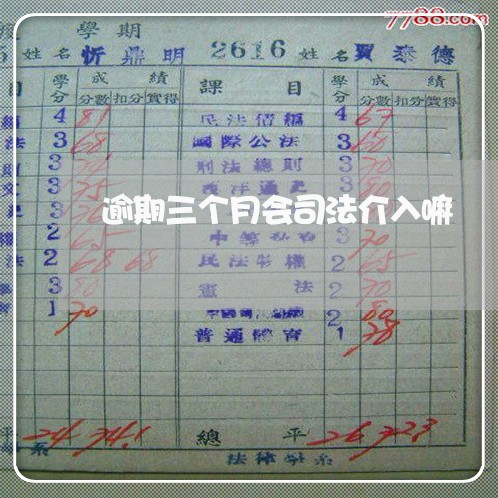 7788.com
學期
姓名 忻鼎明 2616 姓名 賈泰德
目 學分 成績 課目 學分 成績
分數 扣分 實得 分數 扣分 實得
4 81 民法債編 4 67
法 3 68 國際公法 3 60
3 刑法總則 3 70
3 75 西洋通史 3 80
逾期三个月会司法介入嘛
2 65 3 70
法 2 68 68 民法物權 2 65
3 80 憲法 2 70
1 70 2 80
普通體育 1 78
平 24 74.1 總平 26 72.3
系 法律學系